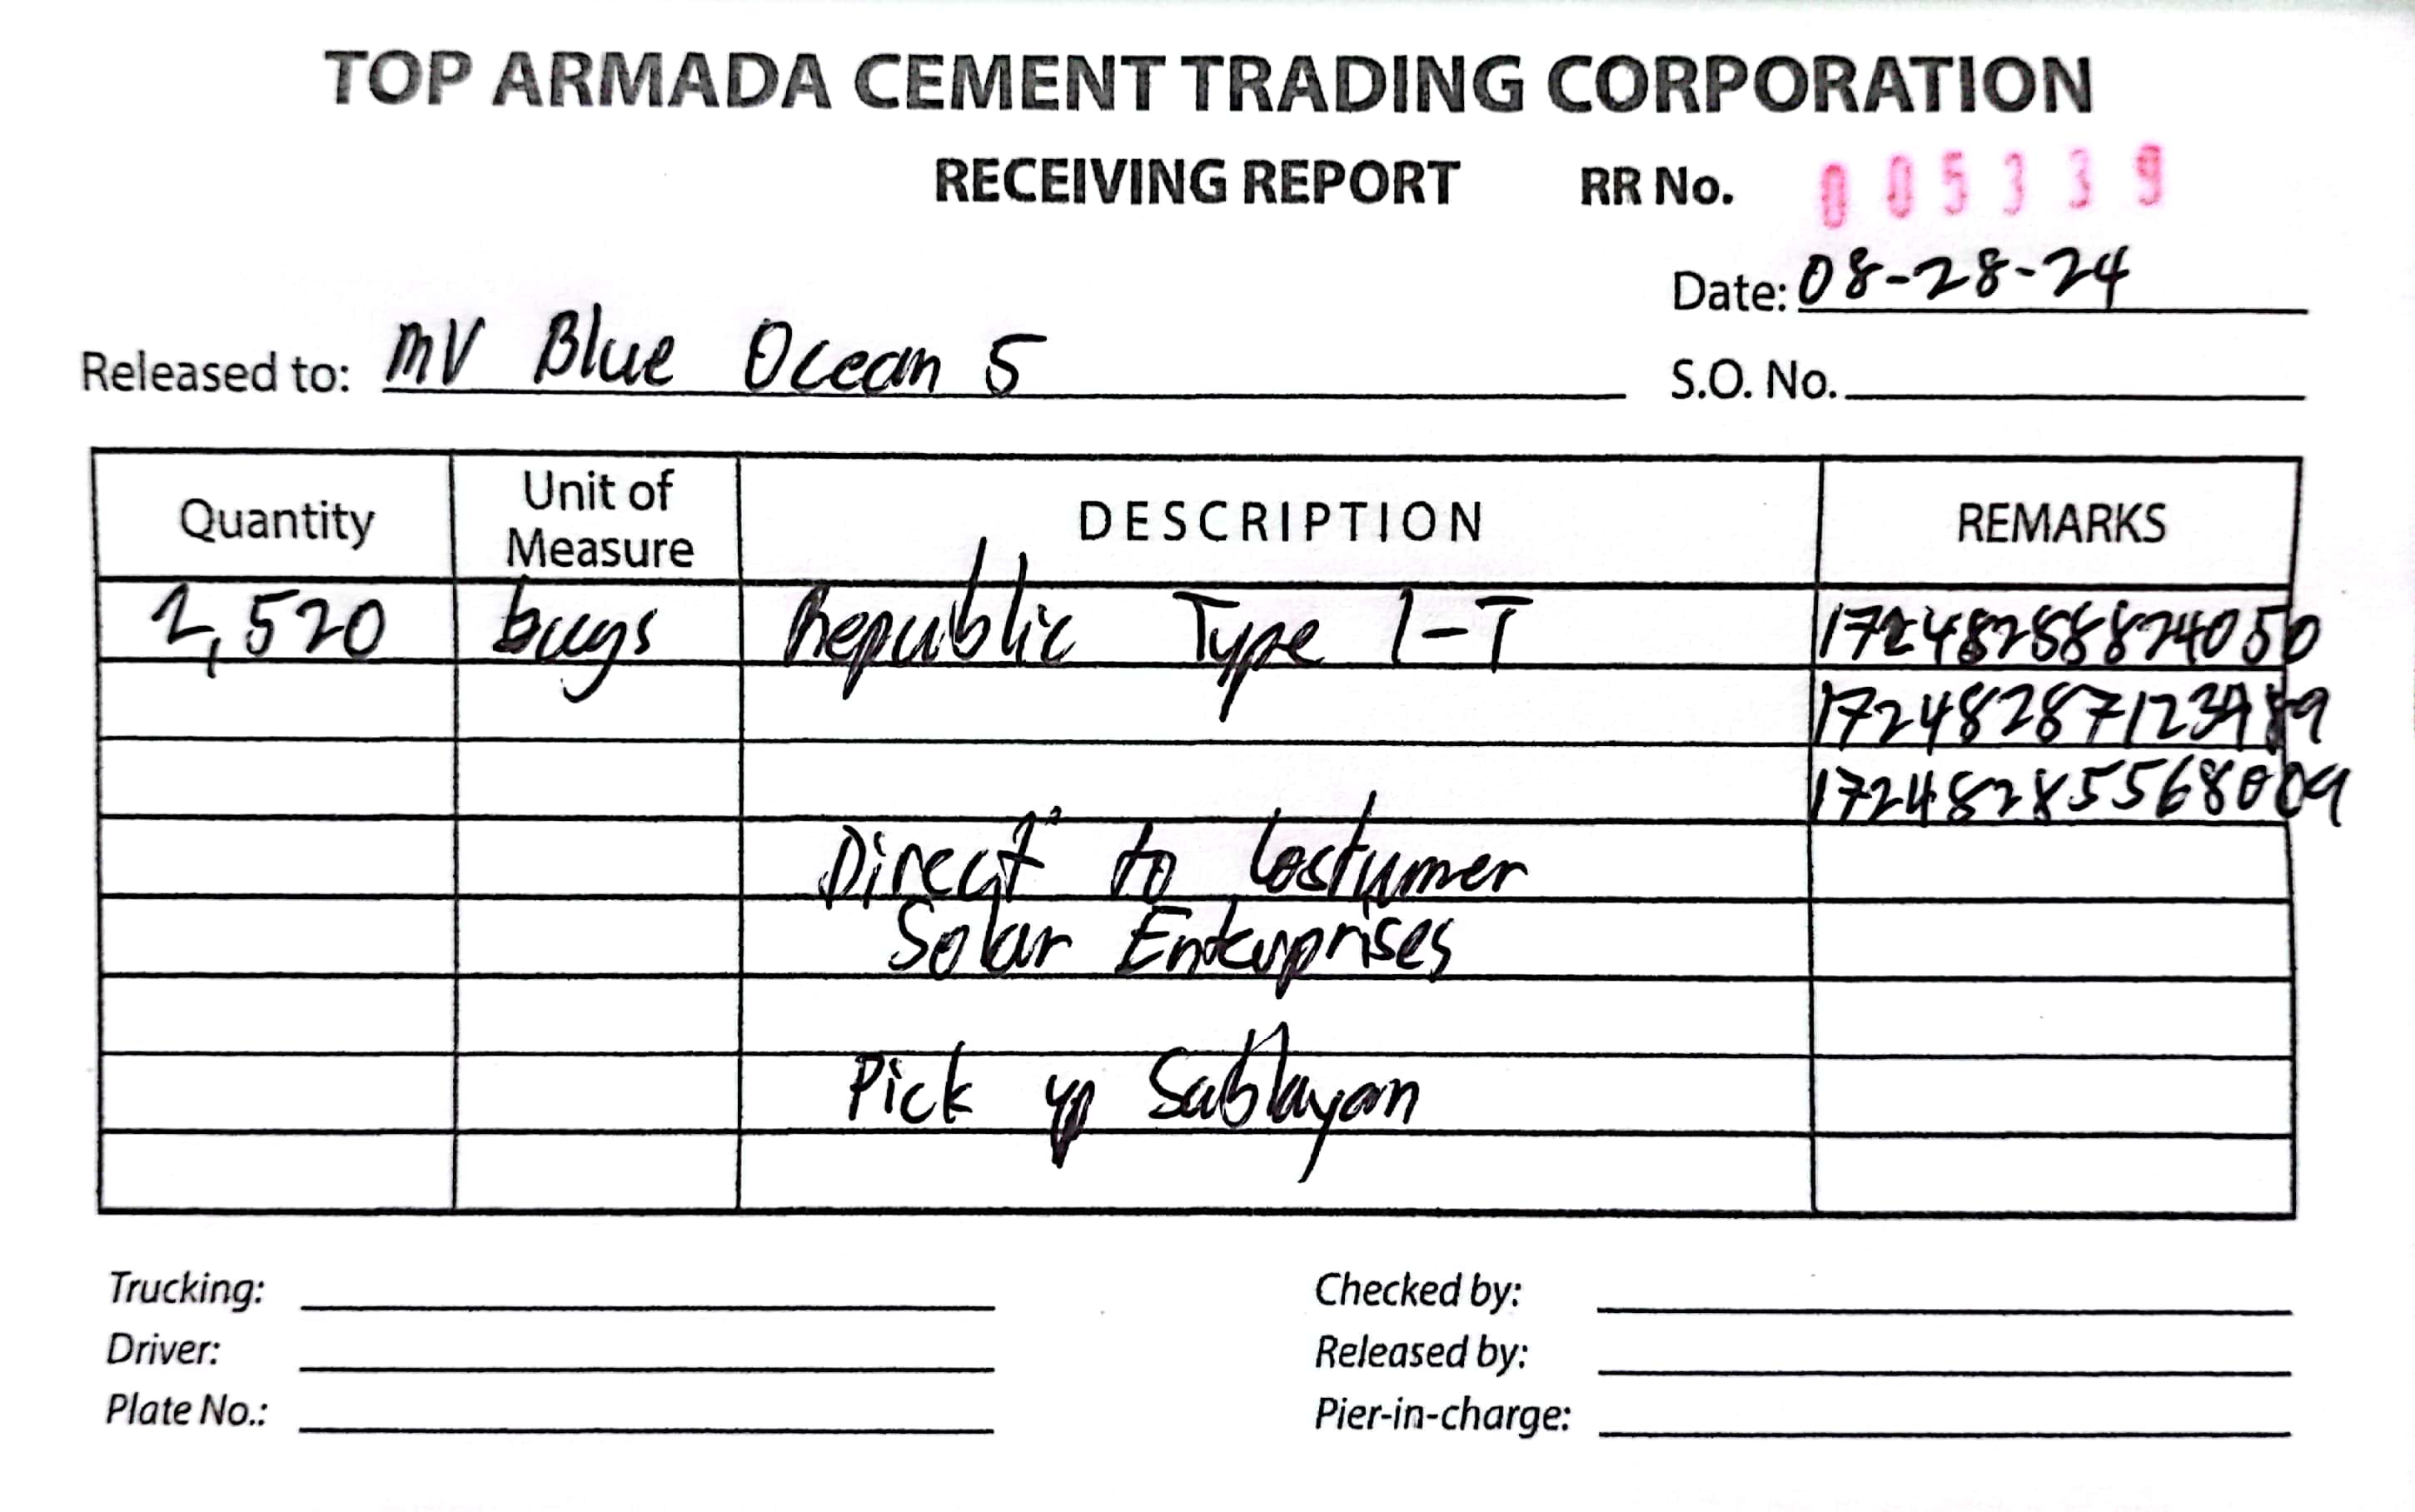 TOP ARMADA CEMENT TRADING CORPORATION
RECEIVING REPORT RR No. 005339
Date: 08-28-24
Released to: MV Blue Ocean 5 S.O. No.
Quantity Unit of Measure DESCRIPTION REMARKS
2,520 bags Republic Type 1-T 17248288824050
Direct to Costumer
Solar Enterprises
Pick up Sablayan
Trucking: Checked by:
Driver: Released by:
Plate No.: Pier-in-charge: